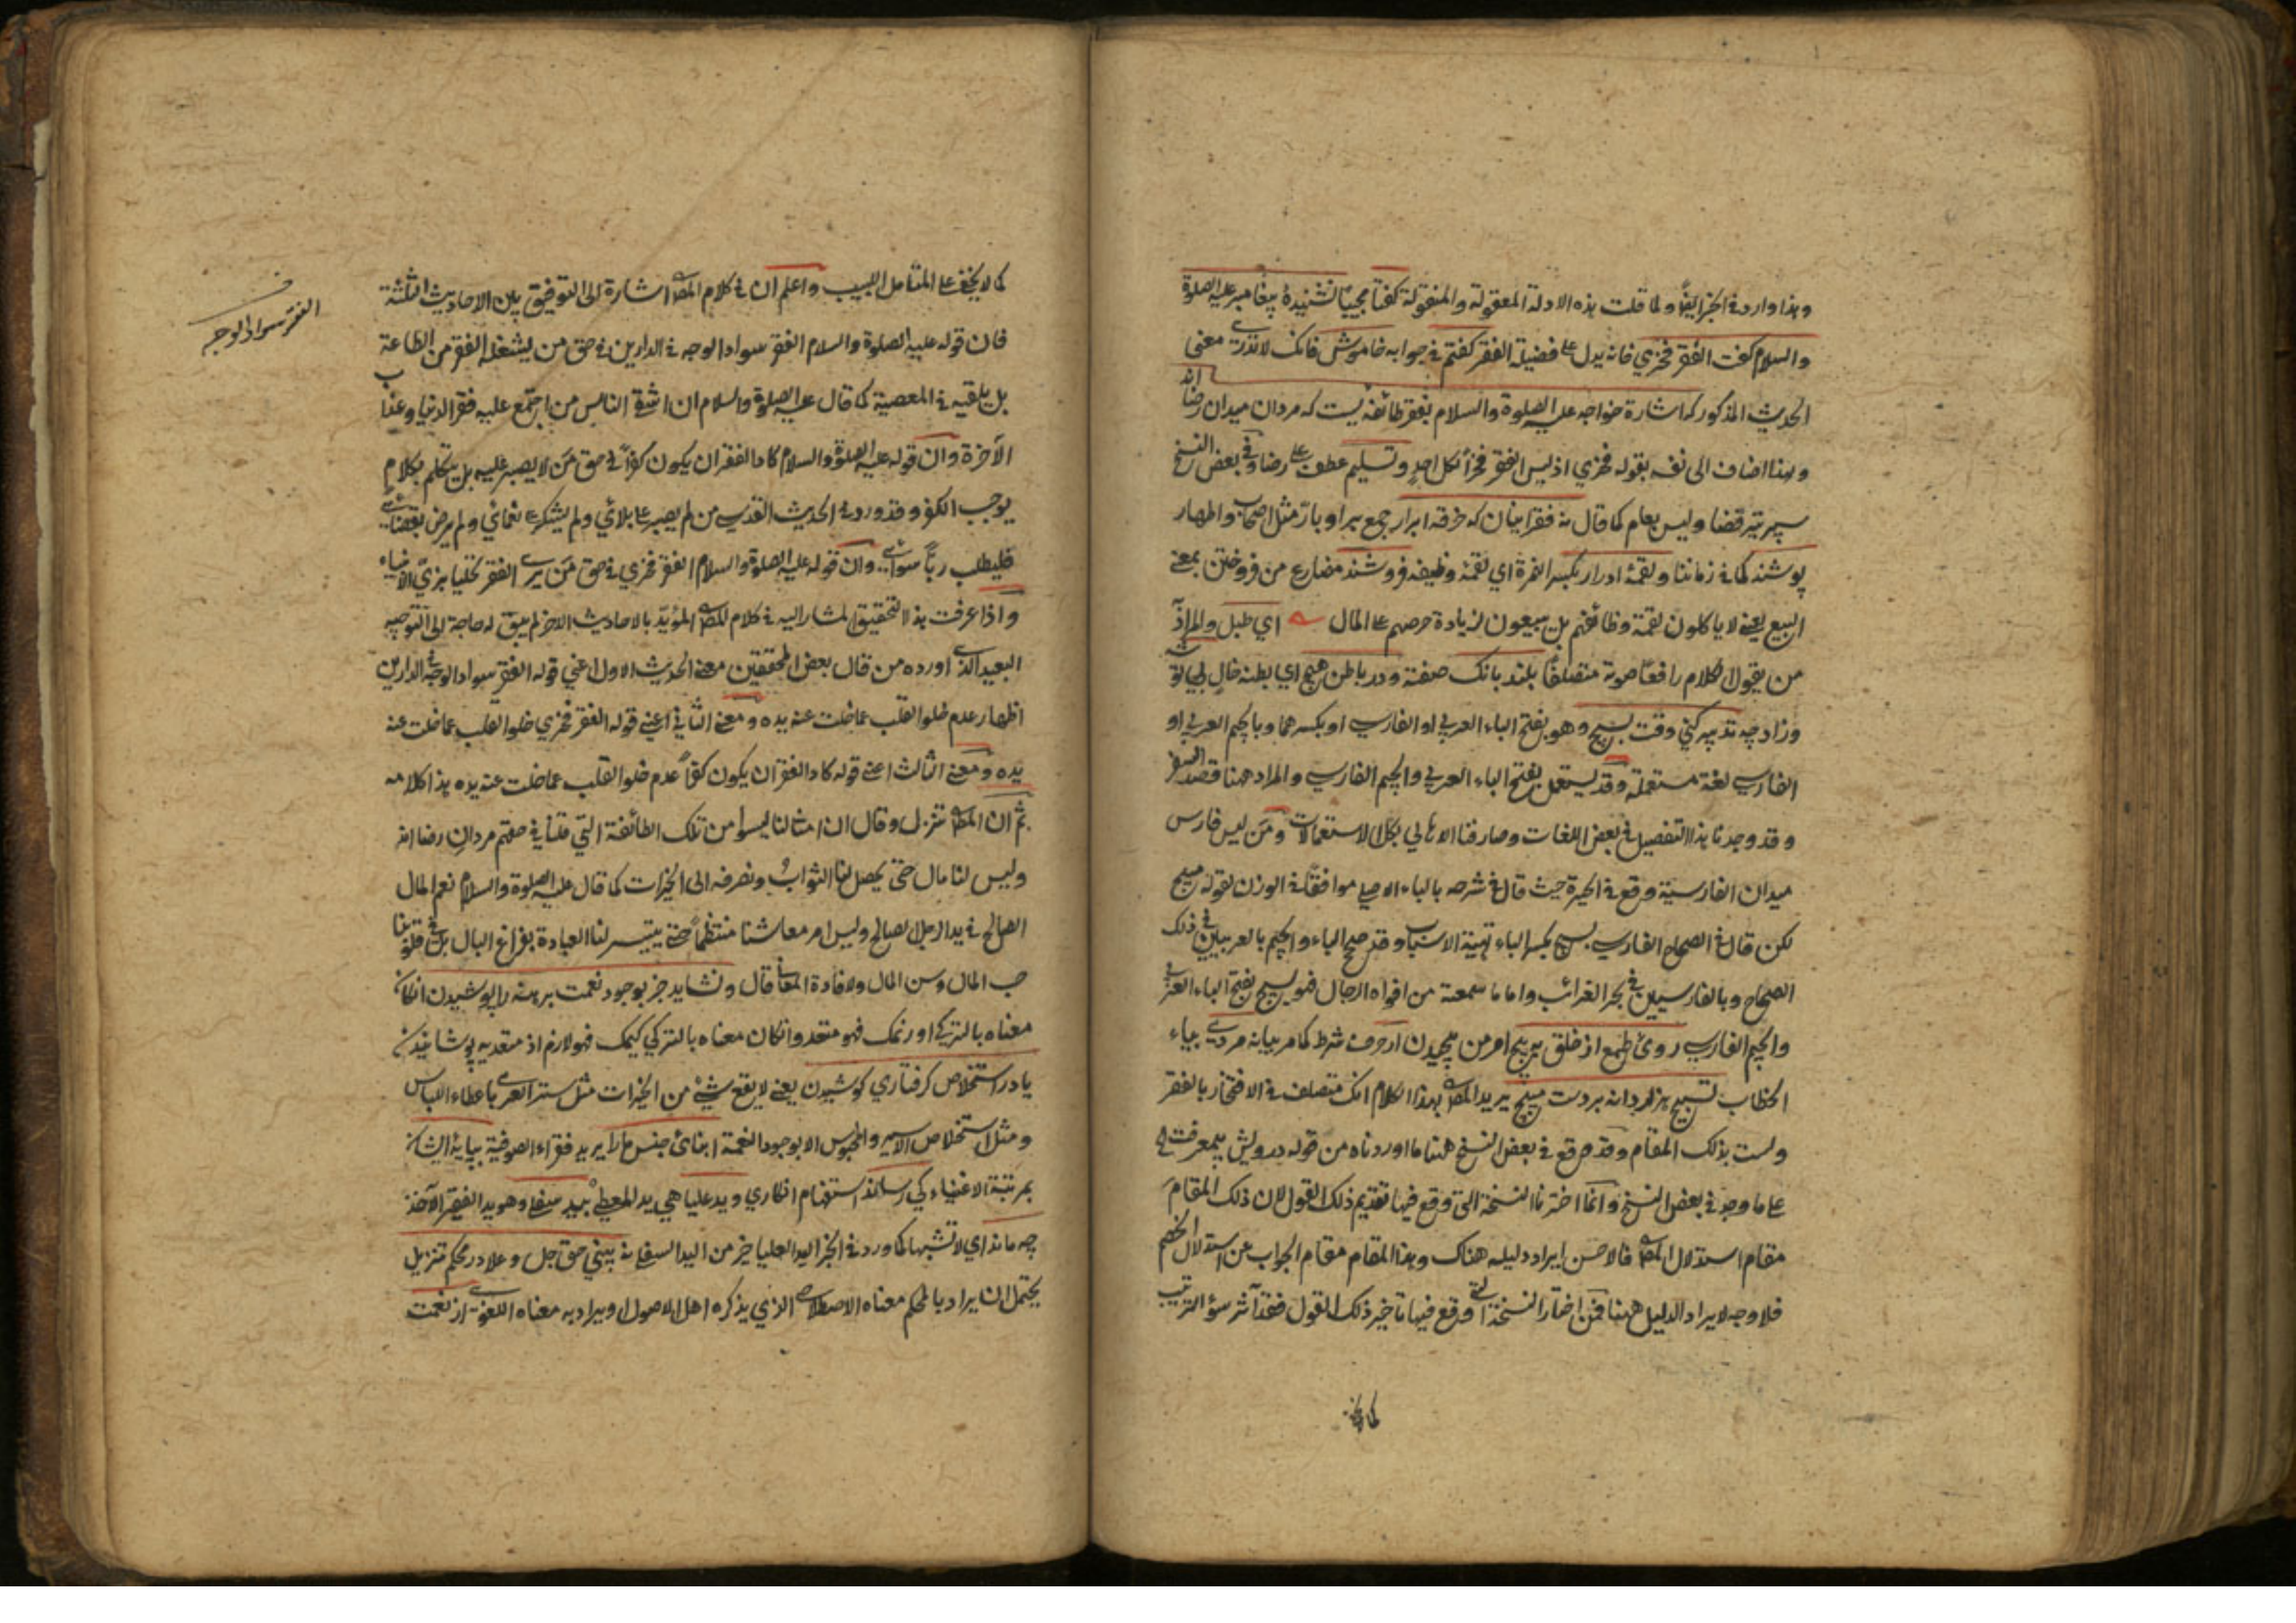 وهذا وارد في الخبر ايضا ولما قلت هذه الادلة المعقولة والمنقولة گفتا مجيبا نشنيدهٔ پيغامبر عليه الصلوة
والسلام گفت الفقر فخري فانه يدل على فضيلة الفقر گفتم في جوابه خاموش فانك لا تدري معنى
الحديث المذكور كه اشارة خواجه عليه الصلوة والسلام بفقر طائفه ايست كه مردان ميدان رضا اند
ولهذا اضاف الى نفسه بقوله فخري اذ ليس الفقر فخرا لكل احد وتسليم عطف على رضا وفي بعض النسخ
سپر تير قضا وليس بعام كما قال نه فقر اينان كه خرقه ابرار جمع بر او بار مثل اصحاب واطهار
پوشند كما في زماننا ولقمهٔ ادرار بكسر الهمزة اي لقمهٔ وظيفه فروشند مضارع من فروختن بمعنى
البيع يعني لا ياكلون لقمة وظائفهم بل يبيعون لزيادة حرصهم على المال اي طبل والمراد
من يقول الكلام رافعا صوته متصلفا بلند بانك صفته ودر باطن هيچ اي بطنه خال بي توشه
وزاد چه تدبير كني وقت بسيج وهو بفتح الباء العربي او الفارسي او بكسرهما وبالجيم العربي او
الفارسي لغة مستعملة وقد يستعمل بفتح الباء العربي والجيم الفارسي والمراد ههنا قصد السفر
وقد وجدنا هذا التفصيل في بعض اللغات وصارفنا الاهالي بكل الاستعمالات ومن ليس فارس
ميدان الفارسية وقع في الحيرة حيث قال في شرحه بالباء الاصلي موافقا في الوزن لقوله مپيچ
لكن قال في الصحاح الفارسي بسيج بكسر الباء تهيئة الاسباب وقد صحح الباء والجيم بالعربيين في ذلك
الصحاح وبالفارسيين في بحر الغرائب واما ما سمعته من افواه الرجال فهو بسيج بفتح الباء العربي
والجيم الفارسي روى طمع از خلق بپيچ امر من پيچيدن ار حرف شرط كما مر بيانه مردي بياء
الخطاب تسبيح هزار دانه بر دست مپيچ يريد المصنف بهذا الكلام انك متصلف في الافتخار بالفقر
ولست بذلك المقام وقد وقع في بعض النسخ ههنا ما اوردناه من قوله درويش بيمعرفت الخ
على ما وجد في بعض النسخ وانما اخترنا النسخة التي وقع فيها تقديم ذلك القول لان ذلك المقام
مقام استدلال المصنف فالاحسن ايراد دليله هناك وهذا المقام مقام الجواب عن استدلال الخصم
فلا وجه لايراد الدليل ههنا فمن اختار النسخة التي وقع فيها تاخير ذلك القول فقد آثر سوء الترتيب
كما لا يخفى
كما لا يخفى على المتأمل اللبيب واعلم ان في كلام المصنف اشارة الى التوفيق بين الاحاديث الثلثة
فان قوله عليه الصلوة والسلام الفقر سواد الوجه في الدارين في حق من يشغله الفقر من الطاعة
بل يلقيه في المعصية كما قال عليه الصلوة والسلام ان اشقى الناس من اجتمع عليه فقر الدنيا وعذاب
الآخرة وان قوله عليه الصلوة والسلام كاد الفقر ان يكون كفرا في حق من لا يصبر عليه بل يتكلم بكلام
يوجب الكفر وقد ورد في الحديث القدسي من لم يصبر على بلائي ولم يشكر على نعمائي ولم يرض بقضائي
فليطلب ربا سوائي وان قوله عليه الصلوة والسلام الفقر فخري في حق من يرى الفقر تحليا بزي الانبياء
واذا عرفت هذا التحقيق المشار اليه في كلام المصنف المؤيد بالاحاديث الاخر لم يبق له حاجة الى التوجيه
البعيد الذي اورده من قال بعض المحققين معنى الحديث الاول اعني قوله الفقر سواد الوجه في الدارين
اظهار عدم خلو القلب عما خلت عنه يده ومعنى الثاني اعني قوله الفقر فخري خلو القلب عما خلت عنه
يده ومعنى الثالث اعني قوله كاد الفقر ان يكون كفرا عدم خلو القلب عما خلت عنه يده هذا كلامه
ثم ان المصنف تنزل وقال ان امثالنا ليسوا من تلك الطائفة التي قلنا في حقهم مردان رضا اند
وليس لنا مال حتى يحصل لنا الثواب ونصرفه الى الخيرات كما قال عليه الصلوة والسلام نعم المال
الصالح في يد الرجل الصالح وليس امر معاشنا منتظما حتى يتيسر لنا العبادة بفراغ البال بل في قلوبنا
حب المال وسن المال ولافادة المعاني قال ونشايد جز بوجود نعمت برهنه را پوشيدن ان كان
معناه بالتركي اورتمك فهو متعد وان كان معناه بالتركي كيمك فهو لازم اذ متعديه پوشانيدن
يا در استخلاص گرفتاري كوشيدن يعني لا يقع شيء من الخيرات مثل ستر العري باعطاء اللباس
ومثل استخلاص الاسير والمحبوس الا بوجود النعمة ابناى جنس مارا يريد فقراء الصوفية بپايهٔ ايشان
بمرتبة الاغنياء كي رساند استفهام انكاري ويد عليا هي يد المعطي بيد سفلى وهو يد الفقير الآخذ
چه ماند اي لا تشبهها كما ورد في الخبر اليد العليا خير من اليد السفلى نه بيني حق جل وعلا در محكم تنزيل
يحتمل ان يراد بالمحكم معناه الاصطلاحي الذي يذكره اهل الاصول او يراد به معناه اللغوي از نعمت
الفقر سواد الوجه